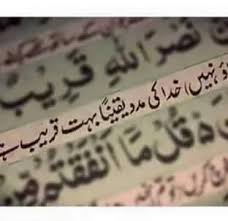 نَصْرَ اللّٰهِ قَرِيْبٌ
نہیں) خدا کی مدد یقیناً بہت قریب ہے
قُلْ مَآ اَنْفَقْتُمْ مِّنْ